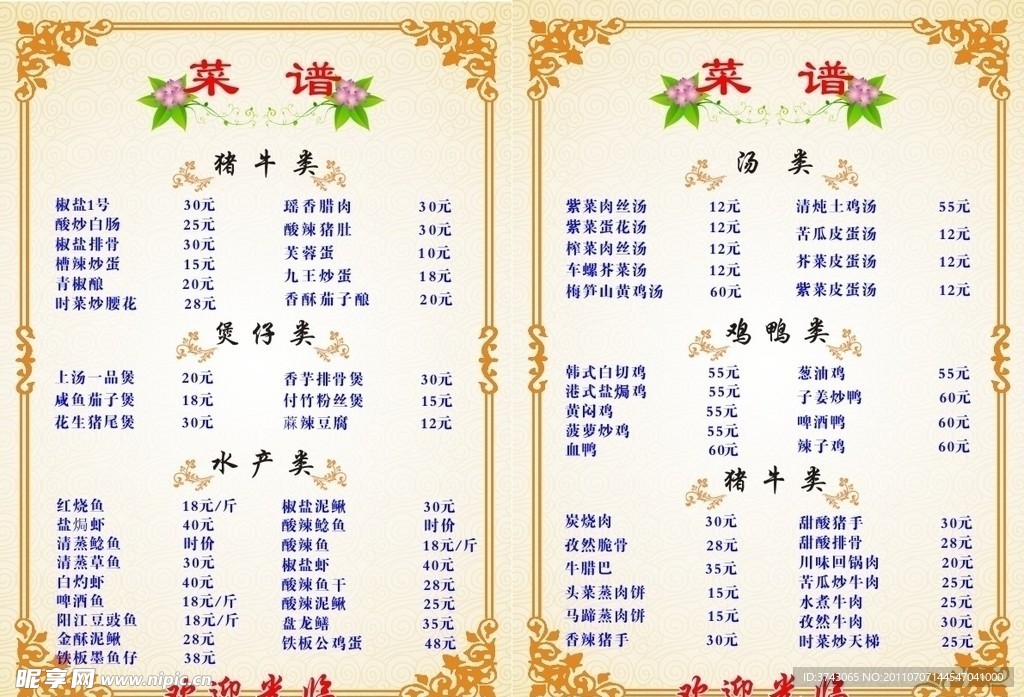 菜 谱
猪 牛 类
椒盐1号 30元
酸炒白肠 25元
椒盐排骨 30元
槽辣炒蛋 15元
青椒酿 20元
时菜炒腰花 28元
瑶香腊肉 30元
酸辣猪肚 30元
芙蓉蛋 10元
九王炒蛋 18元
香酥茄子酿 20元
煲 仔 类
上汤一品煲 20元
咸鱼茄子煲 18元
花生猪尾煲 30元
香芋排骨煲 30元
付竹粉丝煲 15元
蔴辣豆腐 12元
水 产 类
红烧鱼 18元/斤
盐焗虾 40元
清蒸鲶鱼 时价
清蒸草鱼 30元
白灼虾 40元
啤酒鱼 18元/斤
阳江豆豉鱼 18元/斤
金酥泥鳅 28元
铁板墨鱼仔 38元
椒盐泥鳅 30元
酸辣鲶鱼 时价
酸辣鱼 18元/斤
椒盐虾 40元
酸辣鱼干 28元
酸辣泥鳅 25元
盘龙鳝 35元
铁板公鸡蛋 48元
欢迎类临
菜 谱
汤 类
紫菜肉丝汤 12元
紫菜蛋花汤 12元
榨菜肉丝汤 12元
车螺芥菜汤 12元
梅笋山黄鸡汤 60元
清炖土鸡汤 55元
苦瓜皮蛋汤 12元
芥菜皮蛋汤 12元
紫菜皮蛋汤 12元
鸡 鸭 类
韩式白切鸡 55元
港式盐焗鸡 55元
黄闷鸡 55元
菠萝炒鸡 55元
血鸭 60元
葱油鸡 55元
子姜炒鸭 60元
啤酒鸭 60元
辣子鸡 60元
猪 牛 类
炭烧肉 30元
孜然脆骨 28元
牛腊巴 35元
头菜蒸肉饼 15元
马蹄蒸肉饼 15元
香辣猪手 30元
甜酸猪手 30元
甜酸排骨 28元
川味回锅肉 20元
苦瓜炒牛肉 25元
水煮牛肉 25元
孜然牛肉 30元
时菜炒天梯 25元
欢迎类临
昵享网 www.nipic.cn
ID:3743065 NO:20110707144547041000